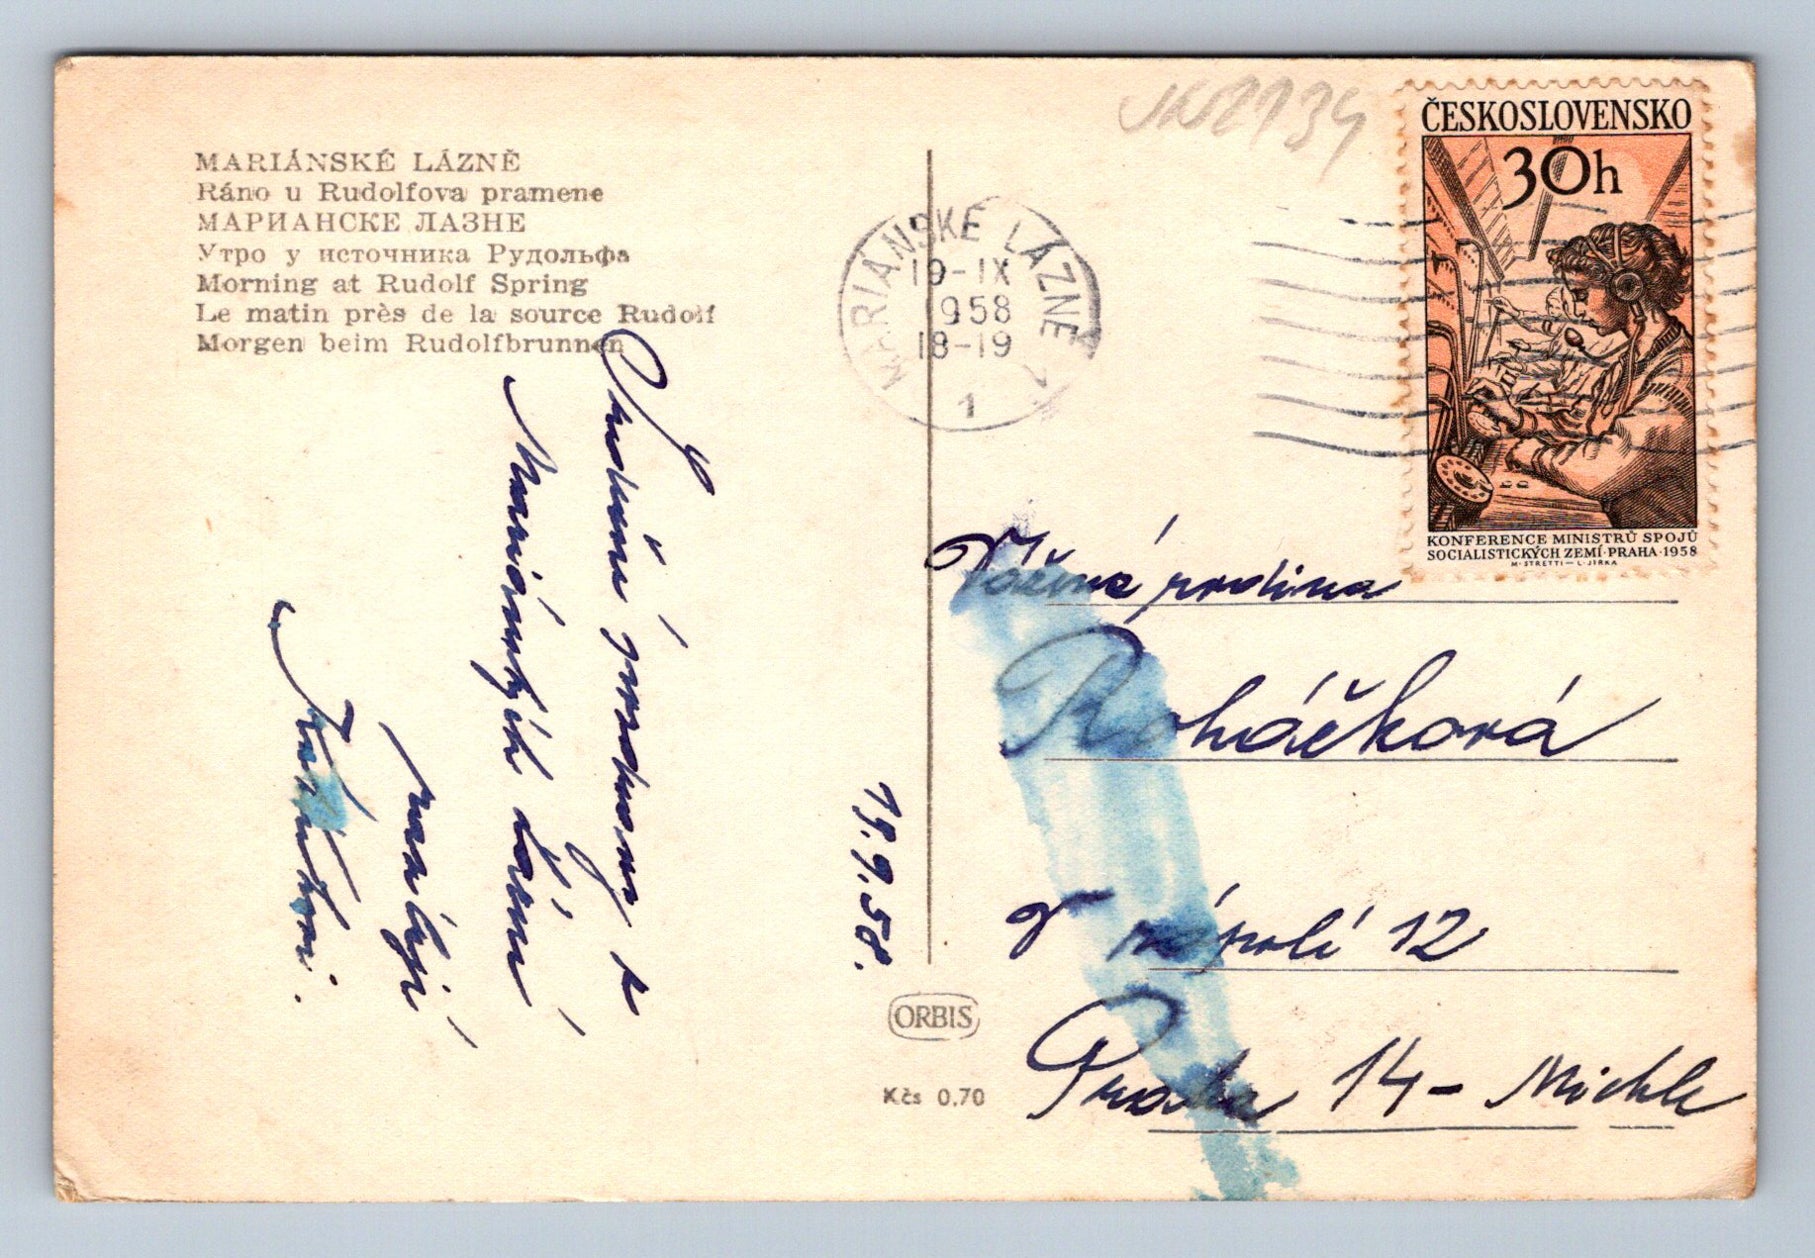 MARIÁNSKÉ LÁZNĚ
Ráno u Rudolfova pramene
МАРИАНСКЕ ЛАЗНЕ
Утро у источника Рудольфа
Morning at Rudolf Spring
Le matin près de la source Rudolf
Morgen beim Rudolfbrunnen
19.9.58.
Srdečné pozdravy z
Mariánských Lázní
zasílají
ORBIS
Kčs 0,70
MARIÁNSKÉ LÁZNĚ
19-IX
1958
18-19
1
ČESKOSLOVENSKO
30h
KONFERENCE MINISTRŮ SPOJŮ
SOCIALISTICKÝCH ZEMÍ·PRAHA·1958
M·STRETTI—L·JIRKA
Vážená rodina
Roháčková
V zápolí 12
Praha 14 - Michle